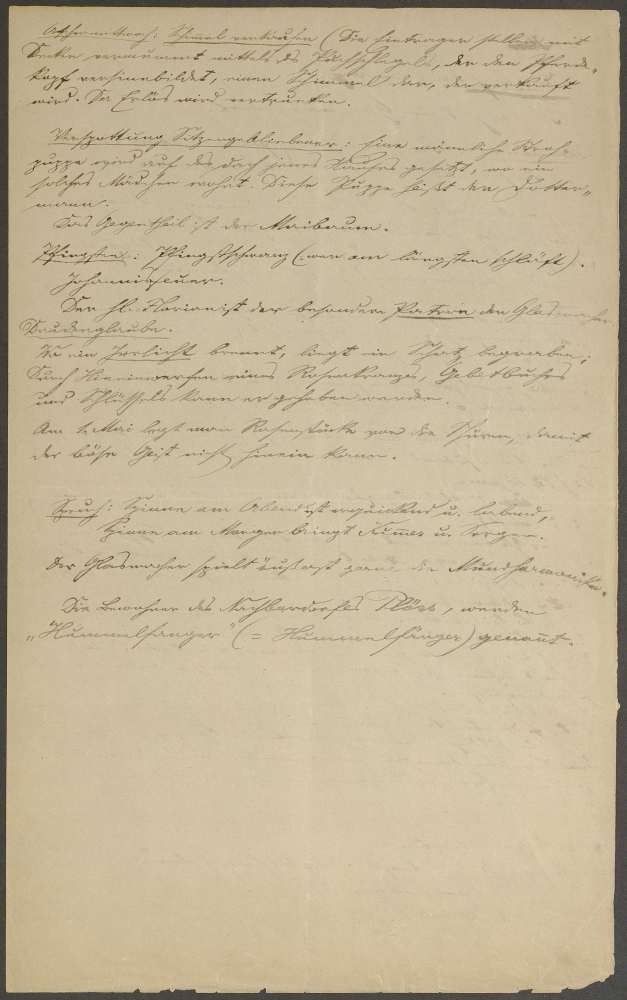 Aschermittwoch: Schimmel verkaufen (Die Eintrager stellen mit
Decken vermummt mittels des Dachschlegels, der den Pferde-
kopf versinnbildet, einen Schimmel dar, der verkauft
wird. Der Erlös wird vertrunken.
Verspottung Sitzengebliebener: Eine männliche Stroh-
puppe wird auf das Dach jenes Hauses gesetzt, wo ein
solches Mädchen wohnt. Diese Puppe heißt der Dotter-
mann.
Das Gegentheil ist der Maibaum.
Pfingsten: Pfingstschwanz (: wer am längsten schläft).
Johannisfeuer.
Der hl. Florian ist der besondere Patron der Glasmacher
Wo ein Irrlicht brennt, liegt ein Schatz begraben,
durch Hineinwerfen eines Rosenkranzes, Gebetbuches
und Schlüssels kann er gehoben werden.
Am 1. Mai legt man Rasenstücke vor die Thüren, damit
der böse Geist nicht hinein kann.
Spruch: Spinne am Abend ist erquickend u. labend,
Spinne am Morgen bringt Kummer u. Sorgen.
Der Glasmacher spielt äußerst gern die Mundharmonika.
Die Bewohner des Nachbardorfes Plöss, werden
„Hummelfanger" (= Hummelfänger) genannt.